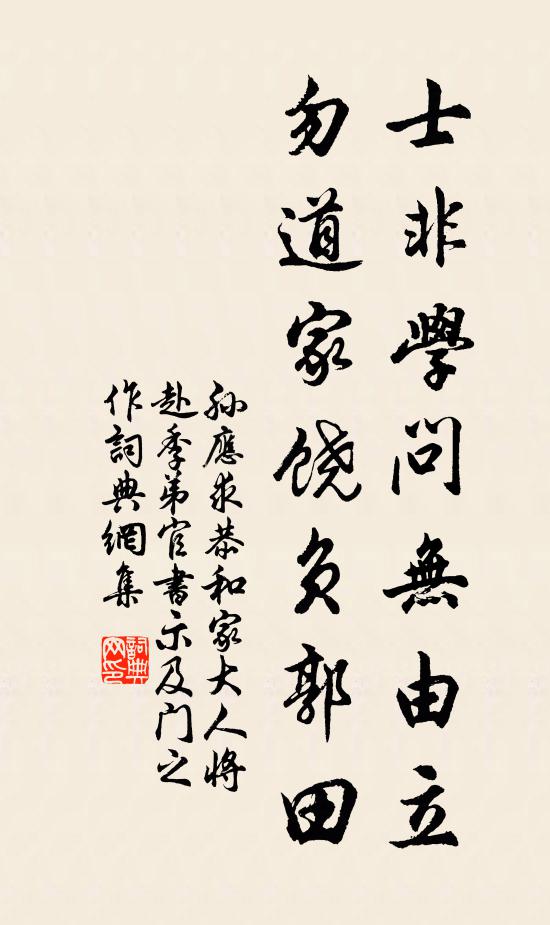 士非學問無由立
勿道家饶负郭田
孙應求恭和家大人將
赴季弟官書示及门之
作詞典網集
詞典網印